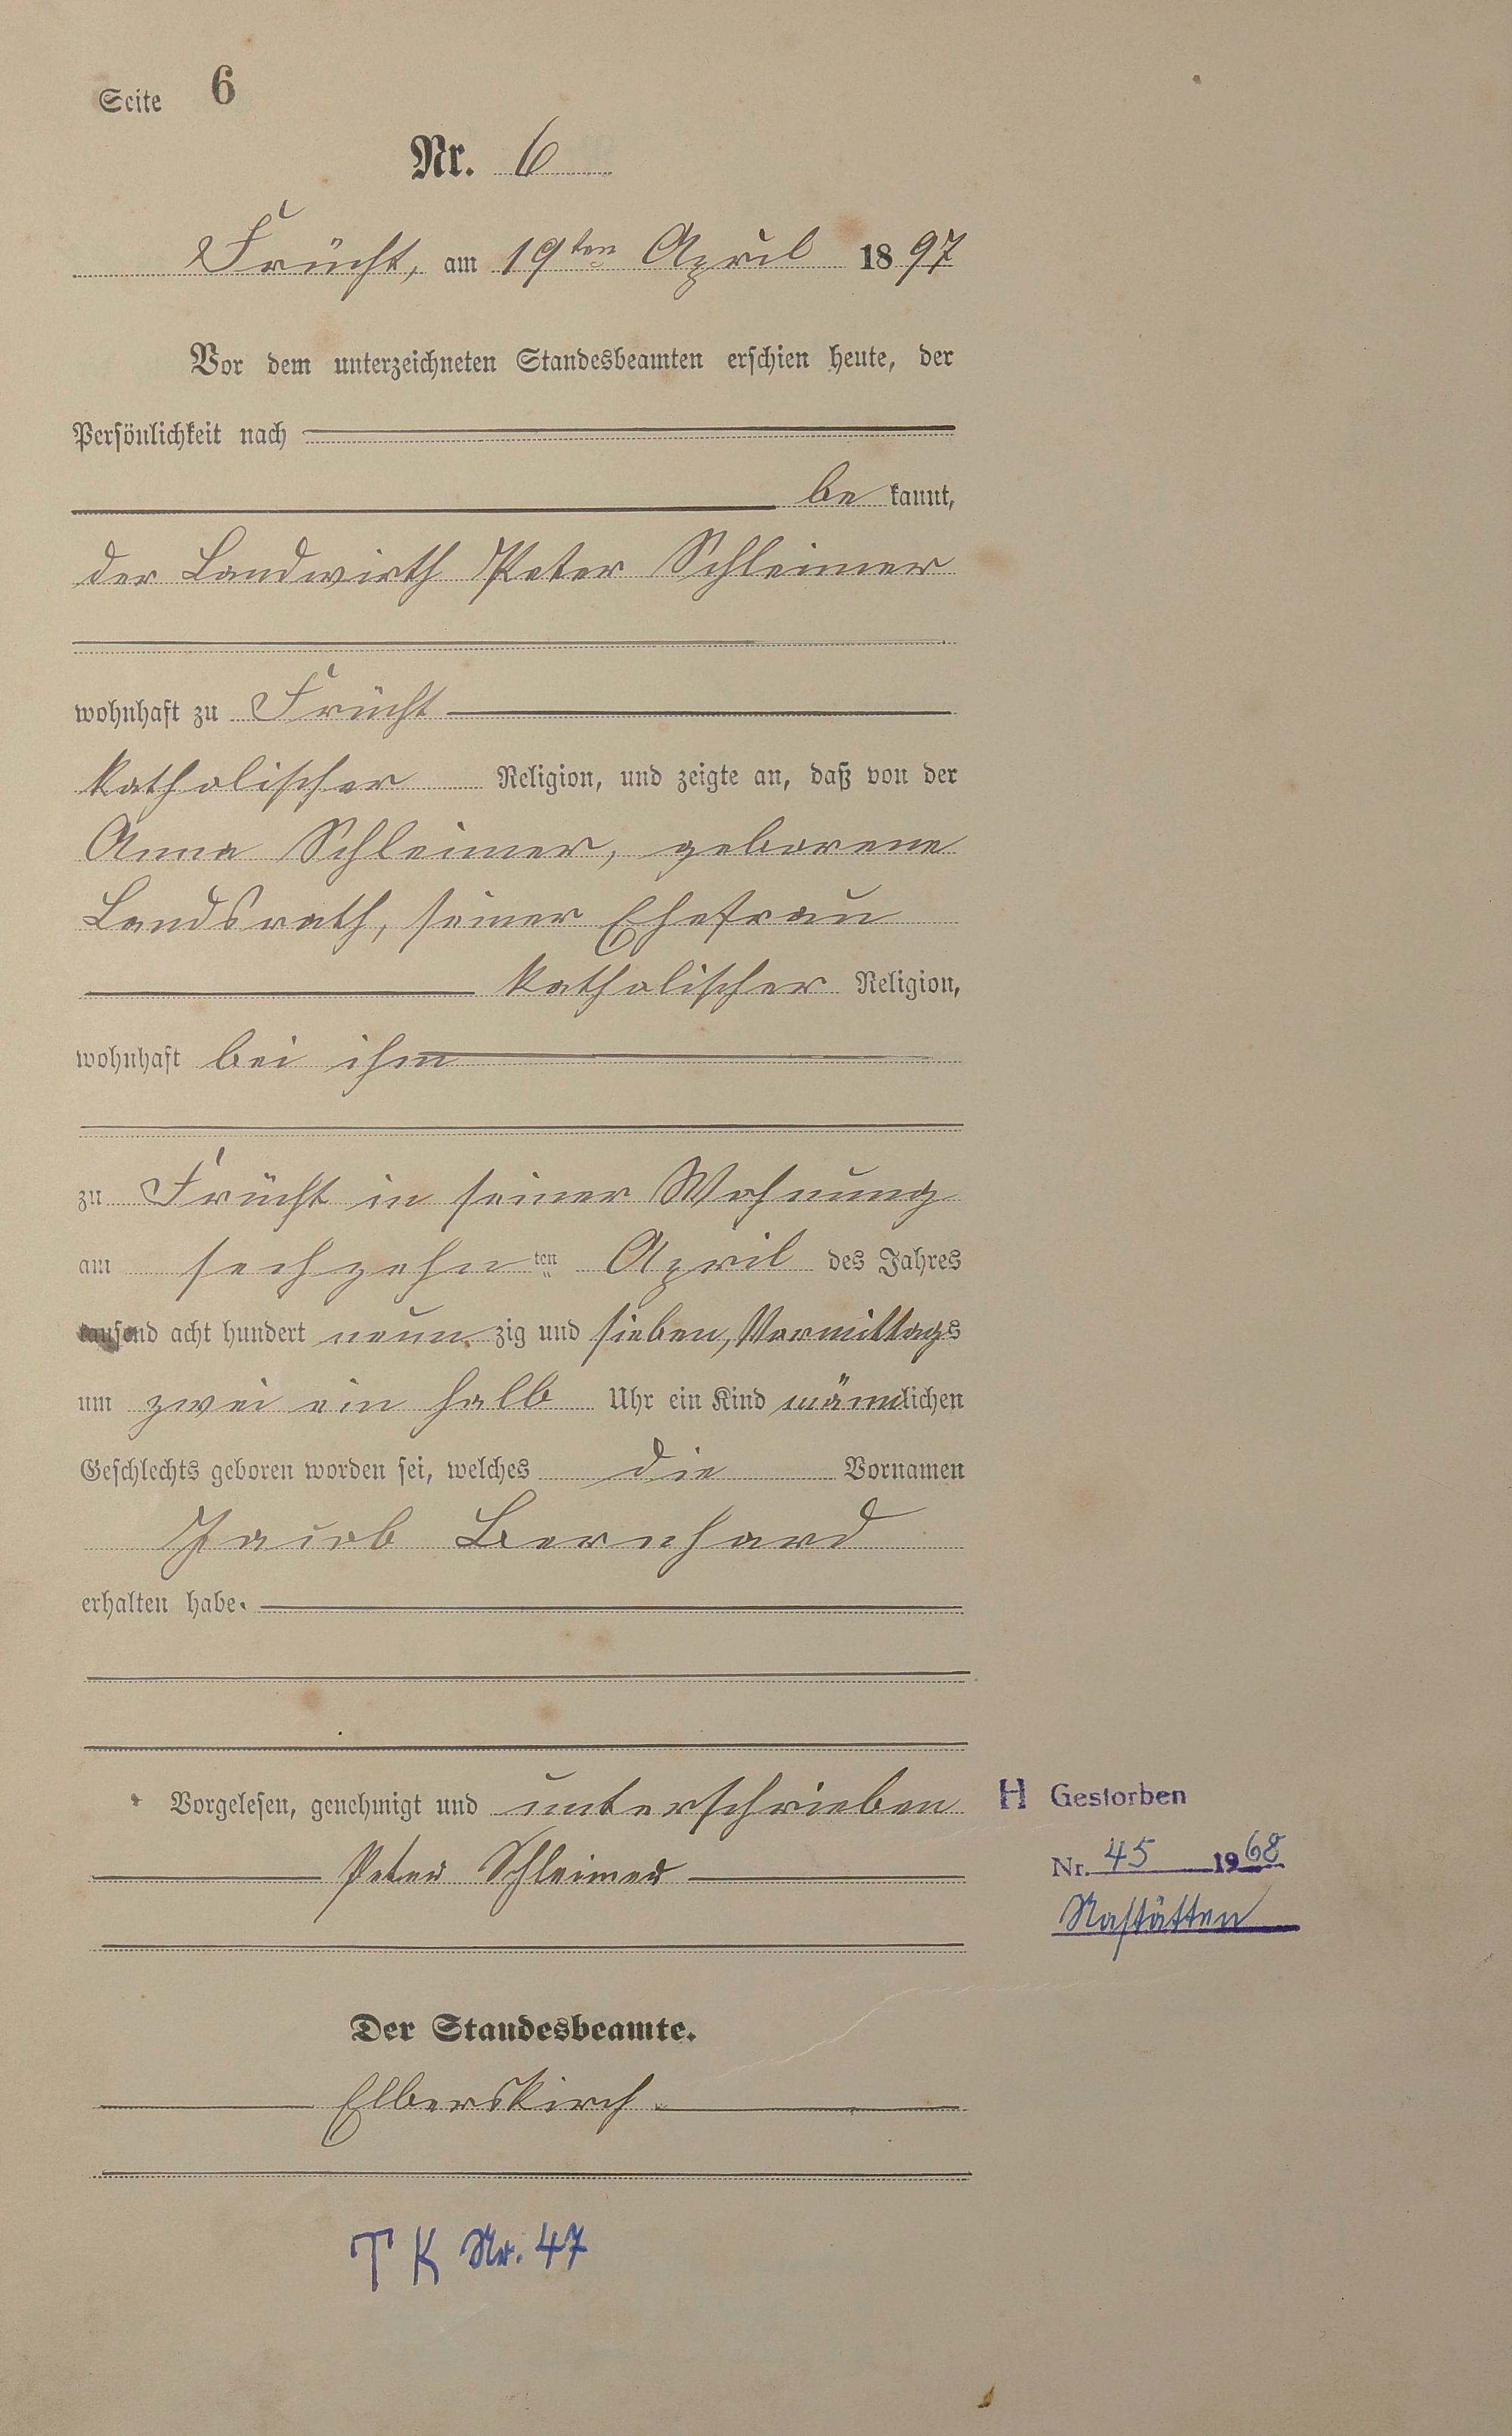 Seite 6
Nr. 6
Frücht, am 19ten April 1897
Vor dem unterzeichneten Standesbeamten erschien heute, der
Persönlichkeit nach
be kannt,
der Landwirth Peter Schleimer
wohnhaft zu Frücht
katholischer Religion, und zeigte an, daß von der
Anna Schleimer, geborene
Landsrath, seiner Ehefrau
katholischer Religion,
wohnhaft bei ihm
zu Frücht in seiner Wohnung
am sechzehnten April des Jahres
tausend acht hundert neunzig und sieben, Vormittags
um zwei ein halb Uhr ein Kind männlichen
Geschlechts geboren worden sei, welches die Vornamen
Jacob Bernhard
erhalten habe.
Vorgelesen, genehmigt und unterschrieben
Peter Schleimer
H Gestorben
Nr. 45 1968
Nastätten
Der Standesbeamte.
Elberskirch.
T K Nr. 47